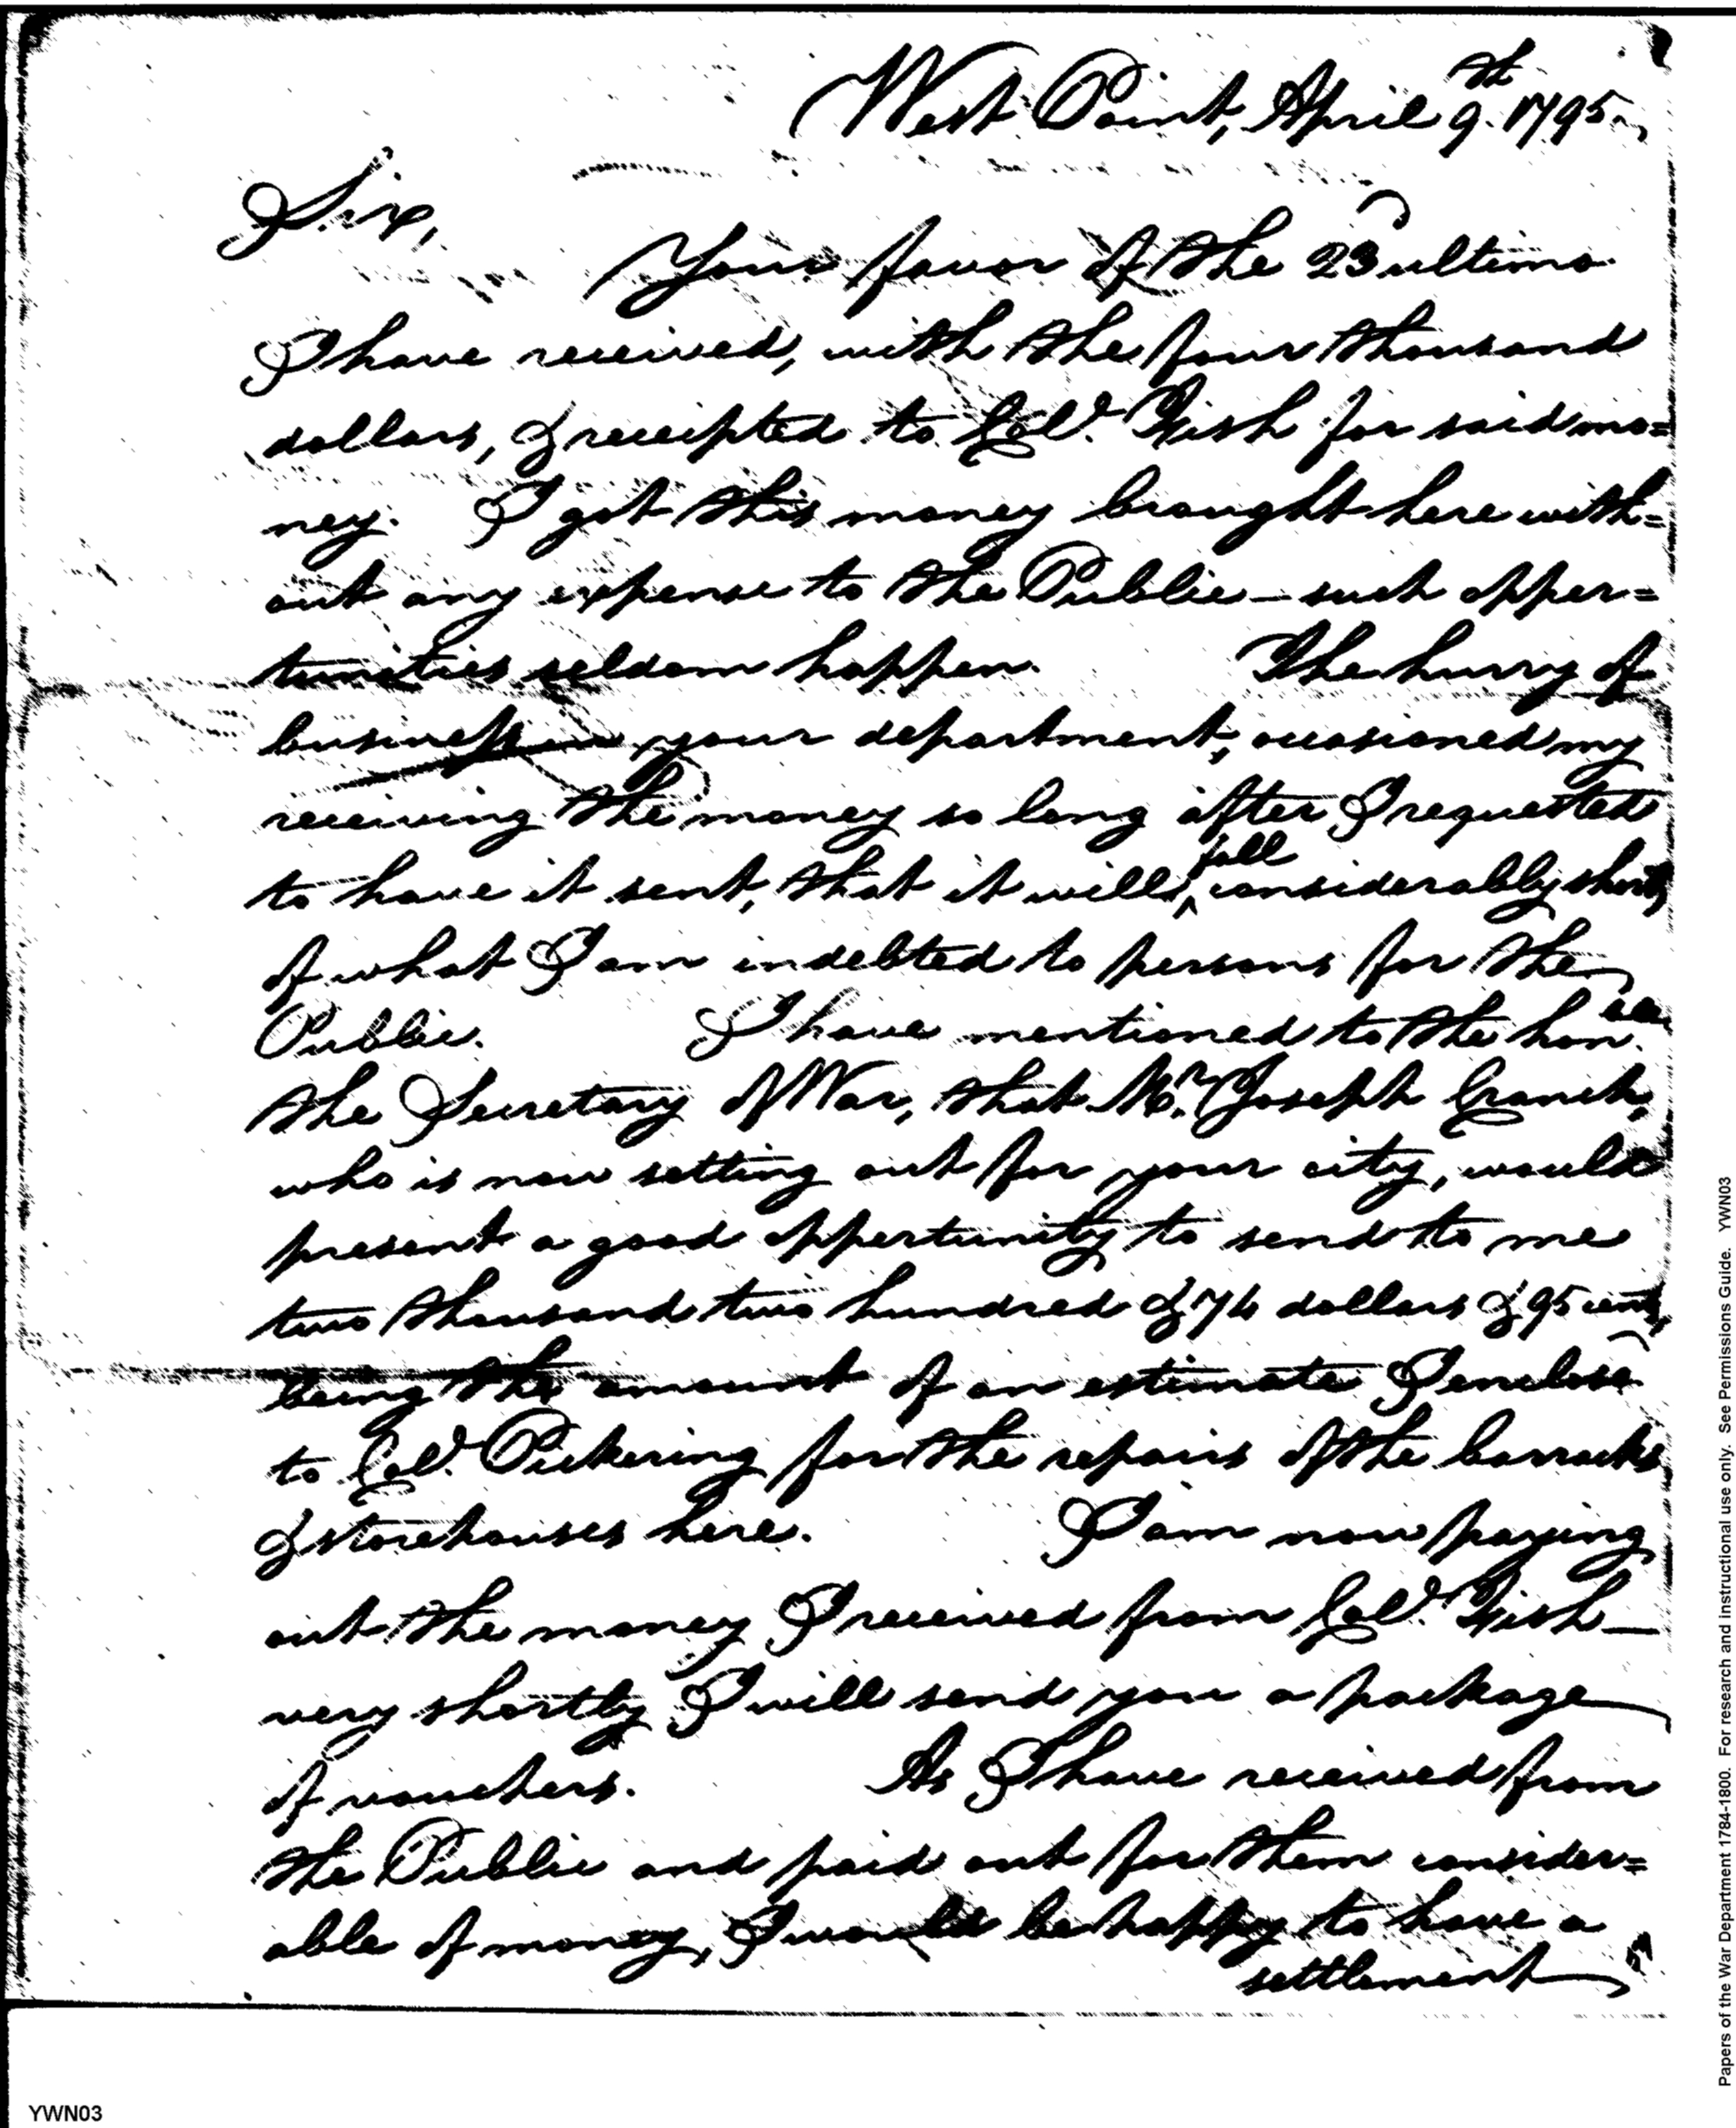 West Point, April 9.th 1795.
Sir,
Your favor of the 23 ultimo
I have received, with the four thousand
dollars, & receipted to Col.o Fish for said mo=
ney. I got this money brought here with=
out any expense to the Public – such opper=
tunities seldom happen. The hurry of
business in your department, occasioned my
receiving the money so long after I requested
to have it sent, that it will fall considerably short
of what I am indebted to persons for the
Public. I have mentioned to the hon.ble
the Secretary of War, that Mr. Joseph Cranch,
who is now setting out for your city, would
present a good oppertunity to send to me
two thousand two hundred & 74 dollars & 95 cents,
being the amount of an estimate I enclose
to Col.o Pickering for the repairs of the barracks
& storehouses here. I am now paying
out the money I received from Col.o Fish –
very shortly I will send you a package
of vouchers. As I have received from
the Public and paid out for them consider=
able of money, I would be happy to have a
settlement
Papers of the War Department 1784-1800. For research and instructional use only. See Permissions Guide. YWN03
YWN03